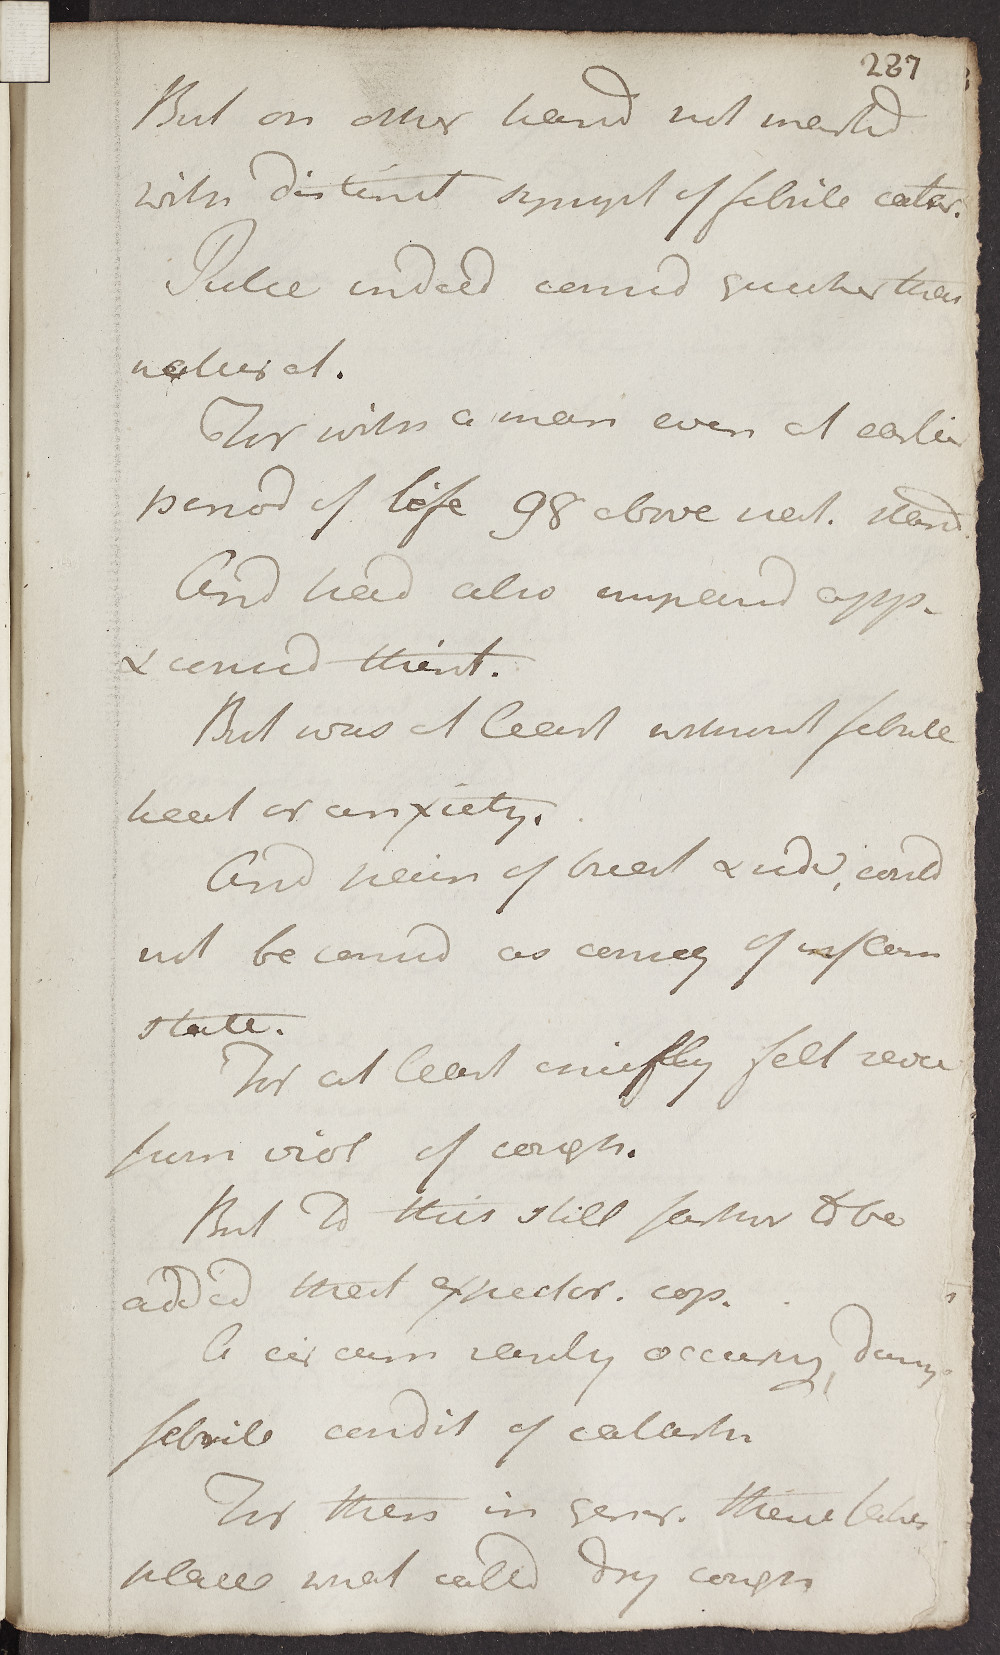 287
But on other hand not marked
with distinct sympt of febrile catar.
Pulse indeed consid quicker than
natural.
For with a man even at earlier
period of life 98 above nat. stand.
And had also impaired app.
& consid thirst.
But was at least without febrile
heat or anxiety.
And pain of breast & side, could
not be consid as coming of inflam
state.
For at least chiefly felt
from viol of cough.
But to this still farther to be
added that expector. cop.
A circum rarely occuring, during
febrile condit of catarrh
For then in gener. there takes
place what called dry cough